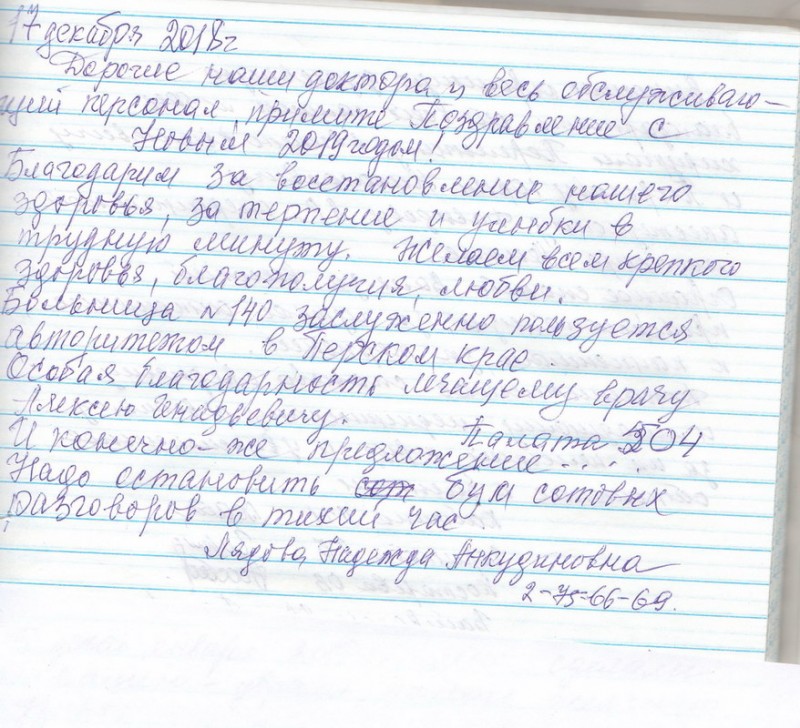 17 декабря 2018г
Дорогие наши доктора и весь обслуживаю-
щий персонал, примите Поздравление с
Новым 2019 годом!
Благодарим за восстановление нашего
здоровья, за терпение и улыбки в
трудную минуту. Желаем всем крепкого
здоровья, благополучия, любви.
Больница №140 заслуженно пользуется
авторитетом в Перском крае
Особая благодарность лечащему врачу
Алексею Генадьевичу. Палата 204
И конечно-же предложение.....
Надо остановить бум сотовых
разговоров в тихий час
Лядова Надежда Анкудиновна
2-75-66-69.